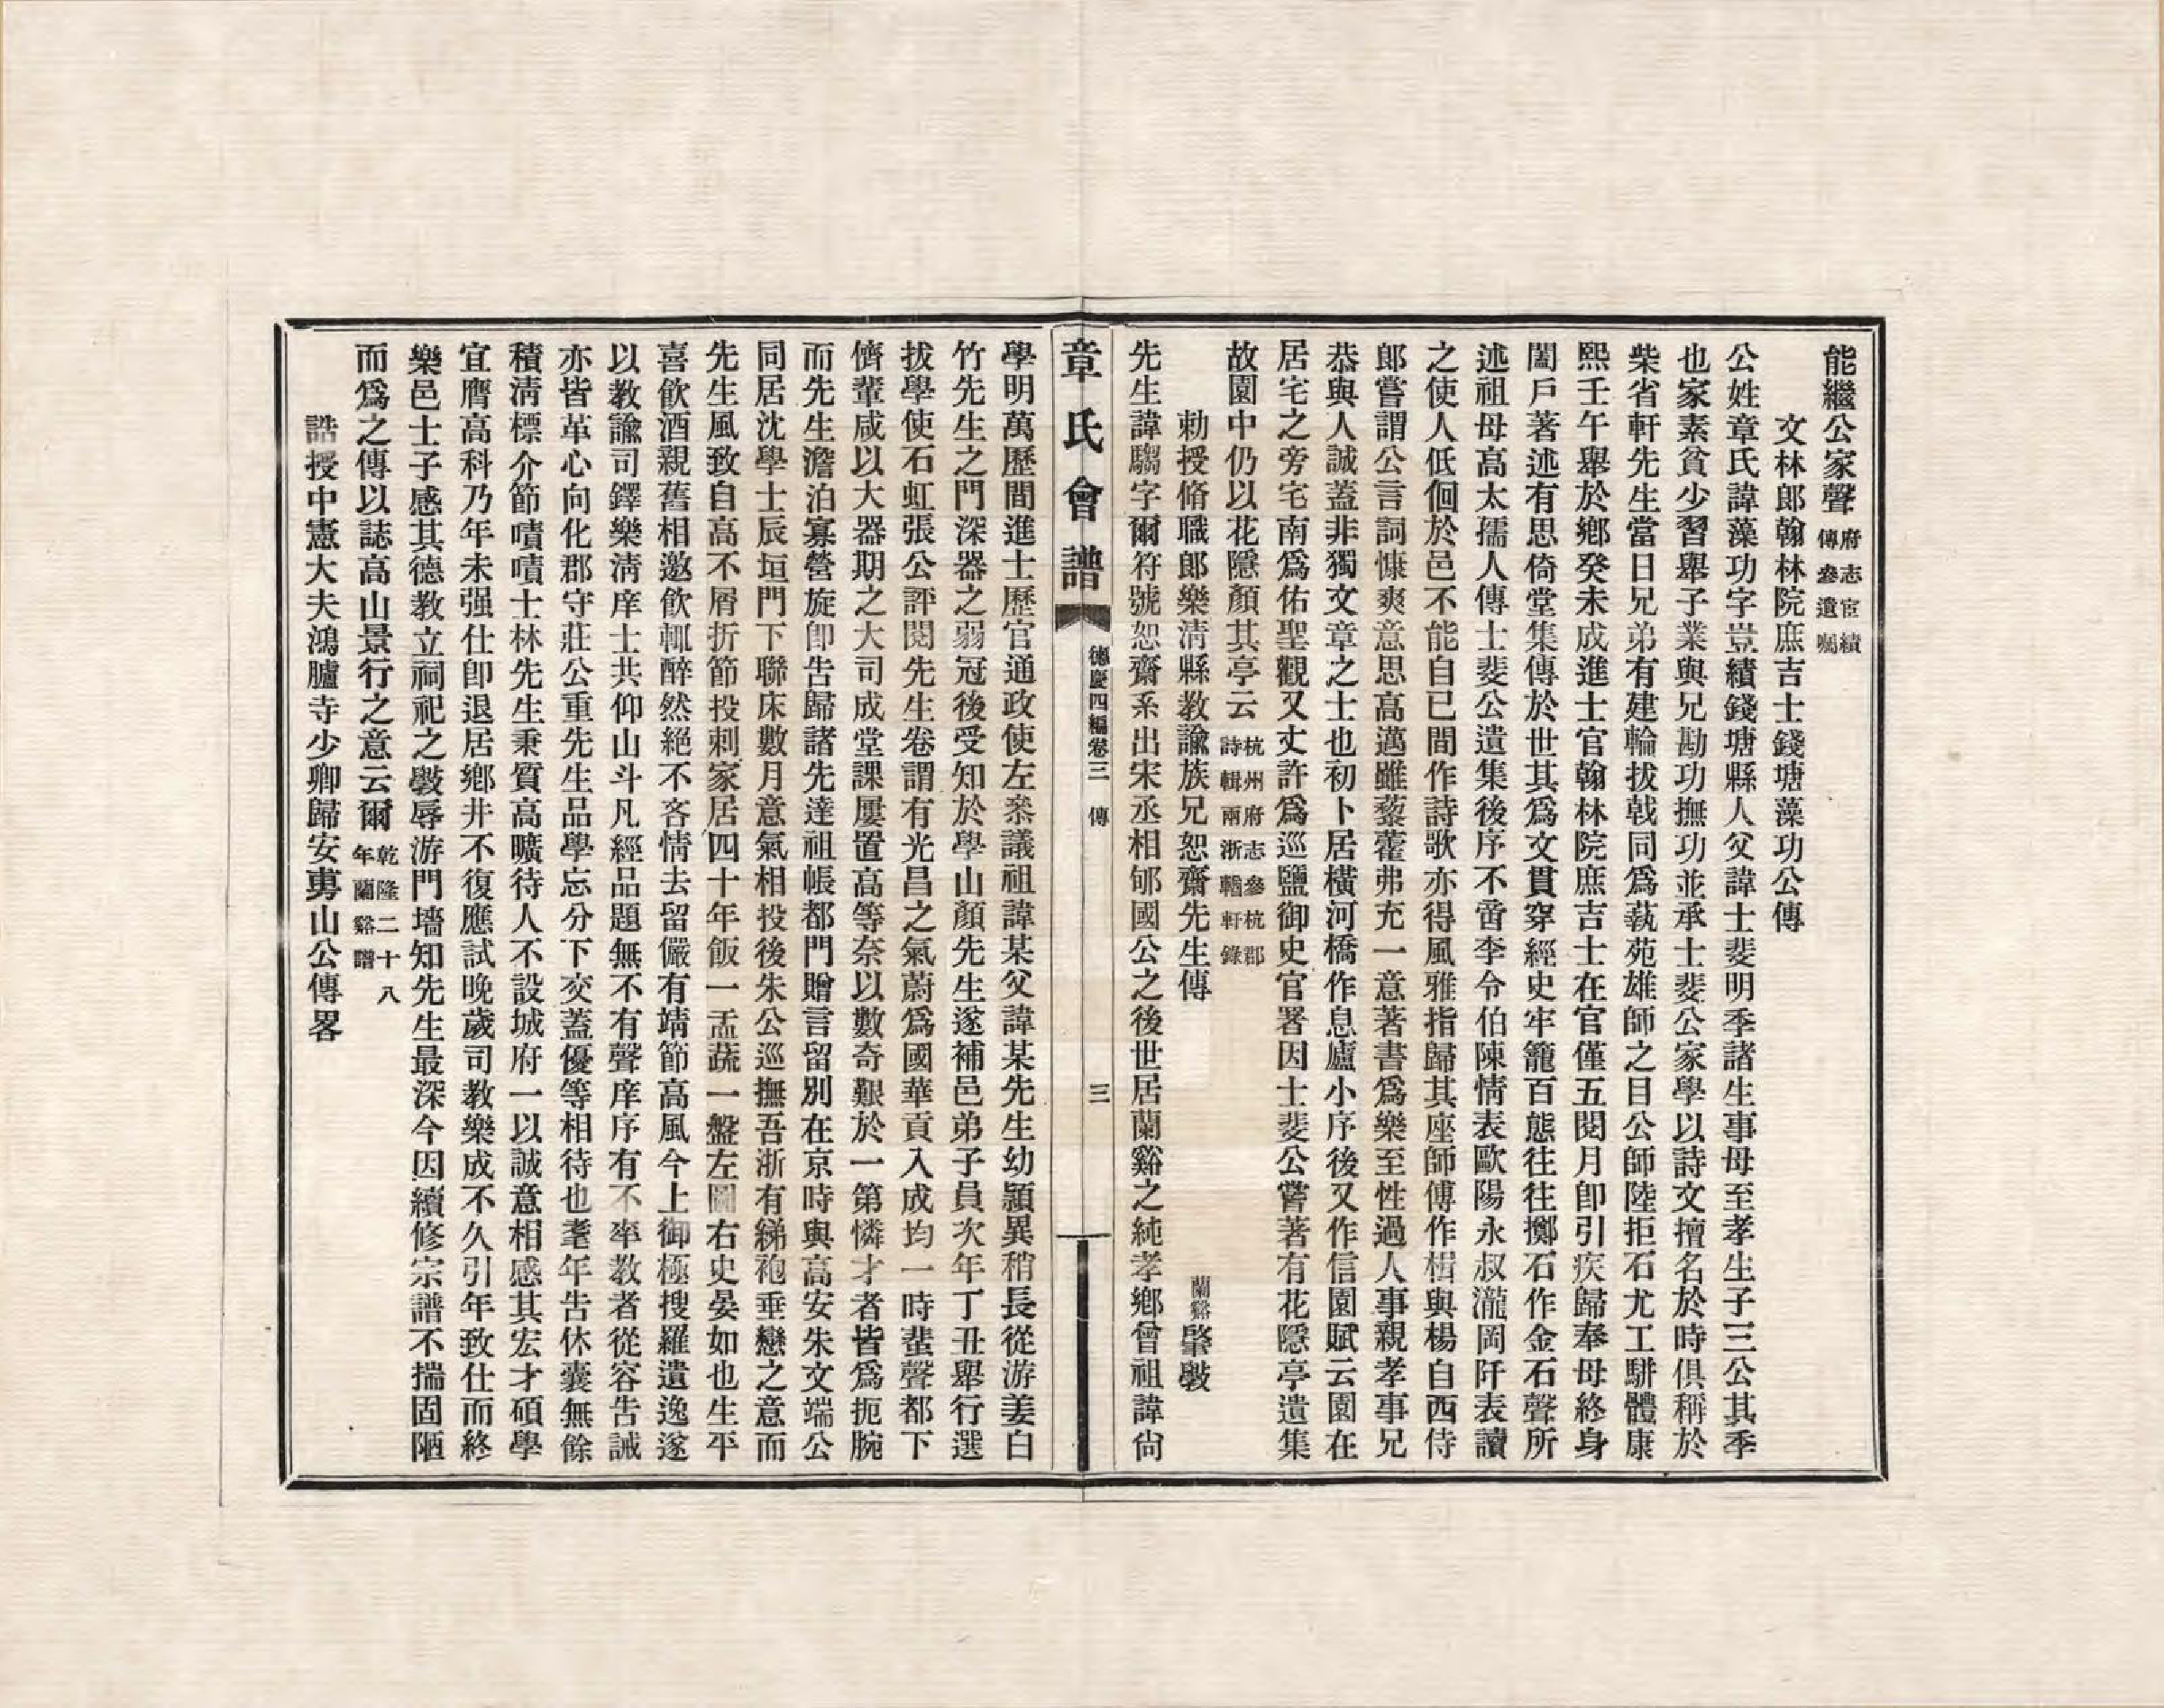 能繼公家聲府志宦績傳參遺囑
文林郎翰林院庶吉士錢塘藻功公傳
公姓章氏諱藻功字豈績錢塘縣人父諱士斐明季諸生事母至孝生子三公其季
也家素貧少習舉子業與兄勘功撫功並承士斐公家學以詩文擅名於時俱稱於
柴省軒先生當日兄弟有建輪拔戟同為蓺苑雄師之目公師陸拒石尤工駢體康
熙壬午舉於鄉癸未成進士官翰林院庶吉士在官僅五閱月卽引疾歸奉母終身
闔戶著述有思倚堂集傳於世其為文貫穿經史牢籠百態往往擲石作金石聲所
述祖母高太孺人傳士斐公遺集後序不啻李令伯陳情表歐陽永叔瀧岡阡表讀
之使人低佪於邑不能自已間作詩歌亦得風雅指歸其座師傅作楫與楊自西侍
郎嘗謂公言詞慷爽意思高邁雖藜藿弗充一意著書為樂至性過人事親孝事兄
恭與人誠蓋非獨文章之士也初卜居橫河橋作息廬小序後又作信園賦云園在
居宅之旁宅南為佑聖觀又丈許為巡鹽御史官署因士斐公嘗著有花隱亭遺集
故園中仍以花隱顏其亭云杭州府志參杭郡詩輯兩浙輶軒錄
勅授脩職郎樂清縣教諭族兄恕齋先生傳 蘭谿肇斅
先生諱騶字爾符號恕齋系出宋丞相郇國公之後世居蘭谿之純孝鄉曾祖諱尙
章氏會譜 德慶四編卷三 傳 三
學明萬歷間進士歷官通政使左叅議祖諱某父諱某先生幼穎異稍長從游姜白
竹先生之門深器之弱冠後受知於學山顏先生遂補邑弟子員次年丁丑舉行選
拔學使石虹張公評閱先生卷謂有光昌之氣蔚為國華貢入成均一時蜚聲都下
儕輩咸以大器期之大司成堂課屢置高等奈以數奇艱於一第憐才者皆為扼腕
而先生澹泊寡營旋卽告歸諸先達祖帳都門贈言留別在京時與高安朱文端公
同居沈學士辰垣門下聯床數月意氣相投後朱公巡撫吾浙有綈袍垂戀之意而
先生風致自高不屑折節投刺家居四十年飯一盂蔬一盤左圖右史晏如也生平
喜飲酒親舊相邀飲輒醉然絕不吝情去留儼有靖節高風今上御極搜羅遺逸遂
以教諭司鐸樂清庠士共仰山斗凡經品題無不有聲庠序有不率教者從容告誡
亦皆革心向化郡守莊公重先生品學忘分下交蓋優等相待也耄年告休囊無餘
積淸標介節嘖嘖士林先生秉質高曠待人不設城府一以誠意相感其宏才碩學
宜膺高科乃年未强仕卽退居鄉井不復應試晚歲司教樂成不久引年致仕而終
樂邑士子感其德教立祠祀之斅辱游門墻知先生最深今因續修宗譜不揣固陋
而為之傳以誌高山景行之意云爾乾隆二十八年蘭谿譜
誥授中憲大夫鴻臚寺少卿歸安吉山公傳畧